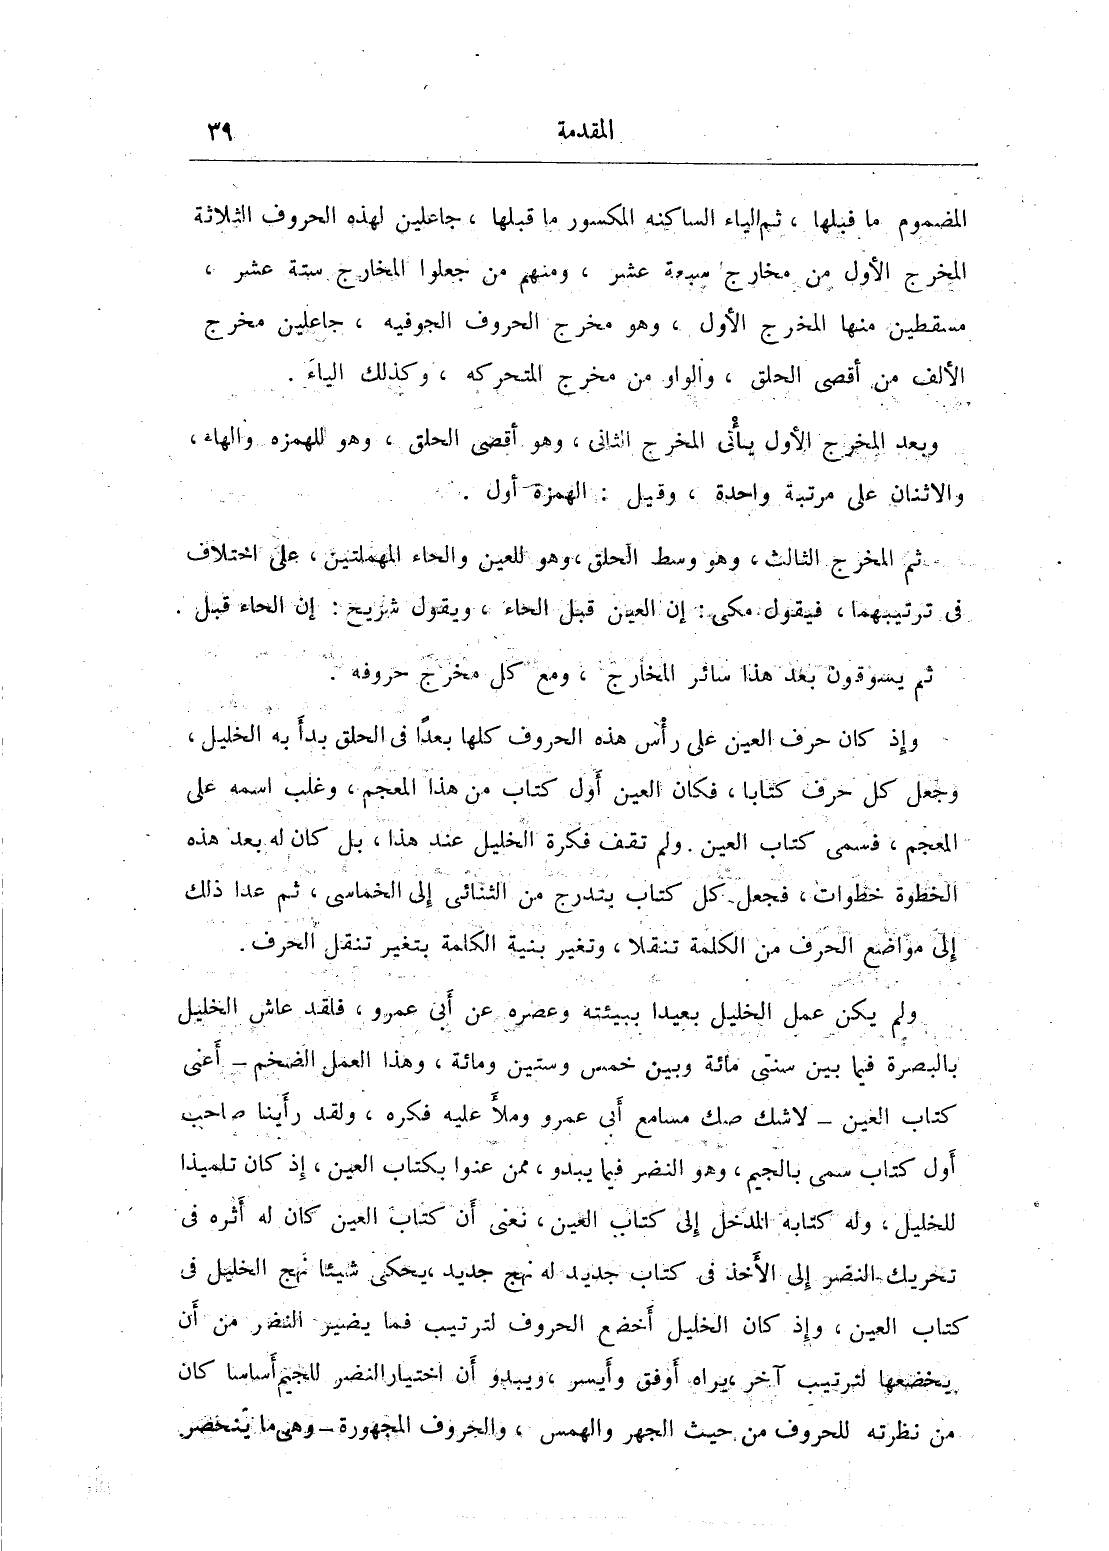 المقدمة ٣٩
المضموم ما قبلها ، ثم الياء الساكنه المكسور ما قبلها ، جاعلين لهذه الحروف الثلاثة
المخرج الأول من مخارج سبعة عشر ، ومنهم من جعلوا المخارج ستة عشر ،
مسقطين منها المخرج الأول ، وهو مخرج الحروف الجوفيه ، جاعلين مخرج
الألف من أقصى الحلق ، والواو من مخرج المتحركه ، وكذلك الياء .
وبعد المخرج الأول يأتى المخرج الثانى ، وهو أقصى الحلق ، وهو للهمزه والهاء ،
والاثنان على مرتبة واحدة ، وقيل : الهمزة أول .
ثم المخرج الثالث ، وهو وسط الحلق ، وهو للعين والحاء المهملتين ، على اختلاف
فى ترتيبهما ، فيقول مكى : إن العين قبل الحاء ، ويقول شريح : إن الحاء قبل .
ثم يسوقون بعد هذا سائر المخارج ، ومع كل مخرج حروفه .
وإذ كان حرف العين على رأس هذه الحروف كلها بعدًا فى الحلق بدأ به الخليل ،
وجعل كل حرف كتابا ، فكان العين أول كتاب من هذا المعجم ، وغلب اسمه على
المعجم ، فسمى كتاب العين . ولم تقف فكرة الخليل عند هذا ، بل كان له بعد هذه
الخطوة خطوات ، فجعل كل كتاب يتدرج من الثنائى إلى الخماسى ، ثم عدا ذلك
إلى مواضع الحرف من الكلمة تنقلا ، وتغير بنية الكلمة بتغير تنقل الحرف .
ولم يكن عمل الخليل بعيدا ببيئته وعصره عن أبى عمرو ، فلقد عاش الخليل
بالبصرة فيما بين سنتى مائة وبين خمس وستين ومائة ، وهذا العمل الضخم – أعنى
كتاب العين – لاشك صك مسامع أبى عمرو وملأ عليه فكره ، ولقد رأينا صاحب
أول كتاب سمى بالجيم ، وهو النضر فيما يبدو ، ممن عنوا بكتاب العين ، إذ كان تلميذا
للخليل ، وله كتابه المدخل إلى كتاب العين ، نعنى أن كتاب العين كان له أثره فى
تحريك النضر إلى الأخذ فى كتاب جديد له نهج جديد ، يحكى شيئا نهج الخليل فى
كتاب العين ، وإذ كان الخليل أخضع الحروف لترتيب فما يضير النضر من أن
يخضعها لترتيب آخر ، يراه أوفق وأيسر ، ويبدو أن اختيار النضر للجيم أساسا كان
من نظرته للحروف من حيث الجهر والهمس ، والحروف المجهورة – وهى ما ينحصر